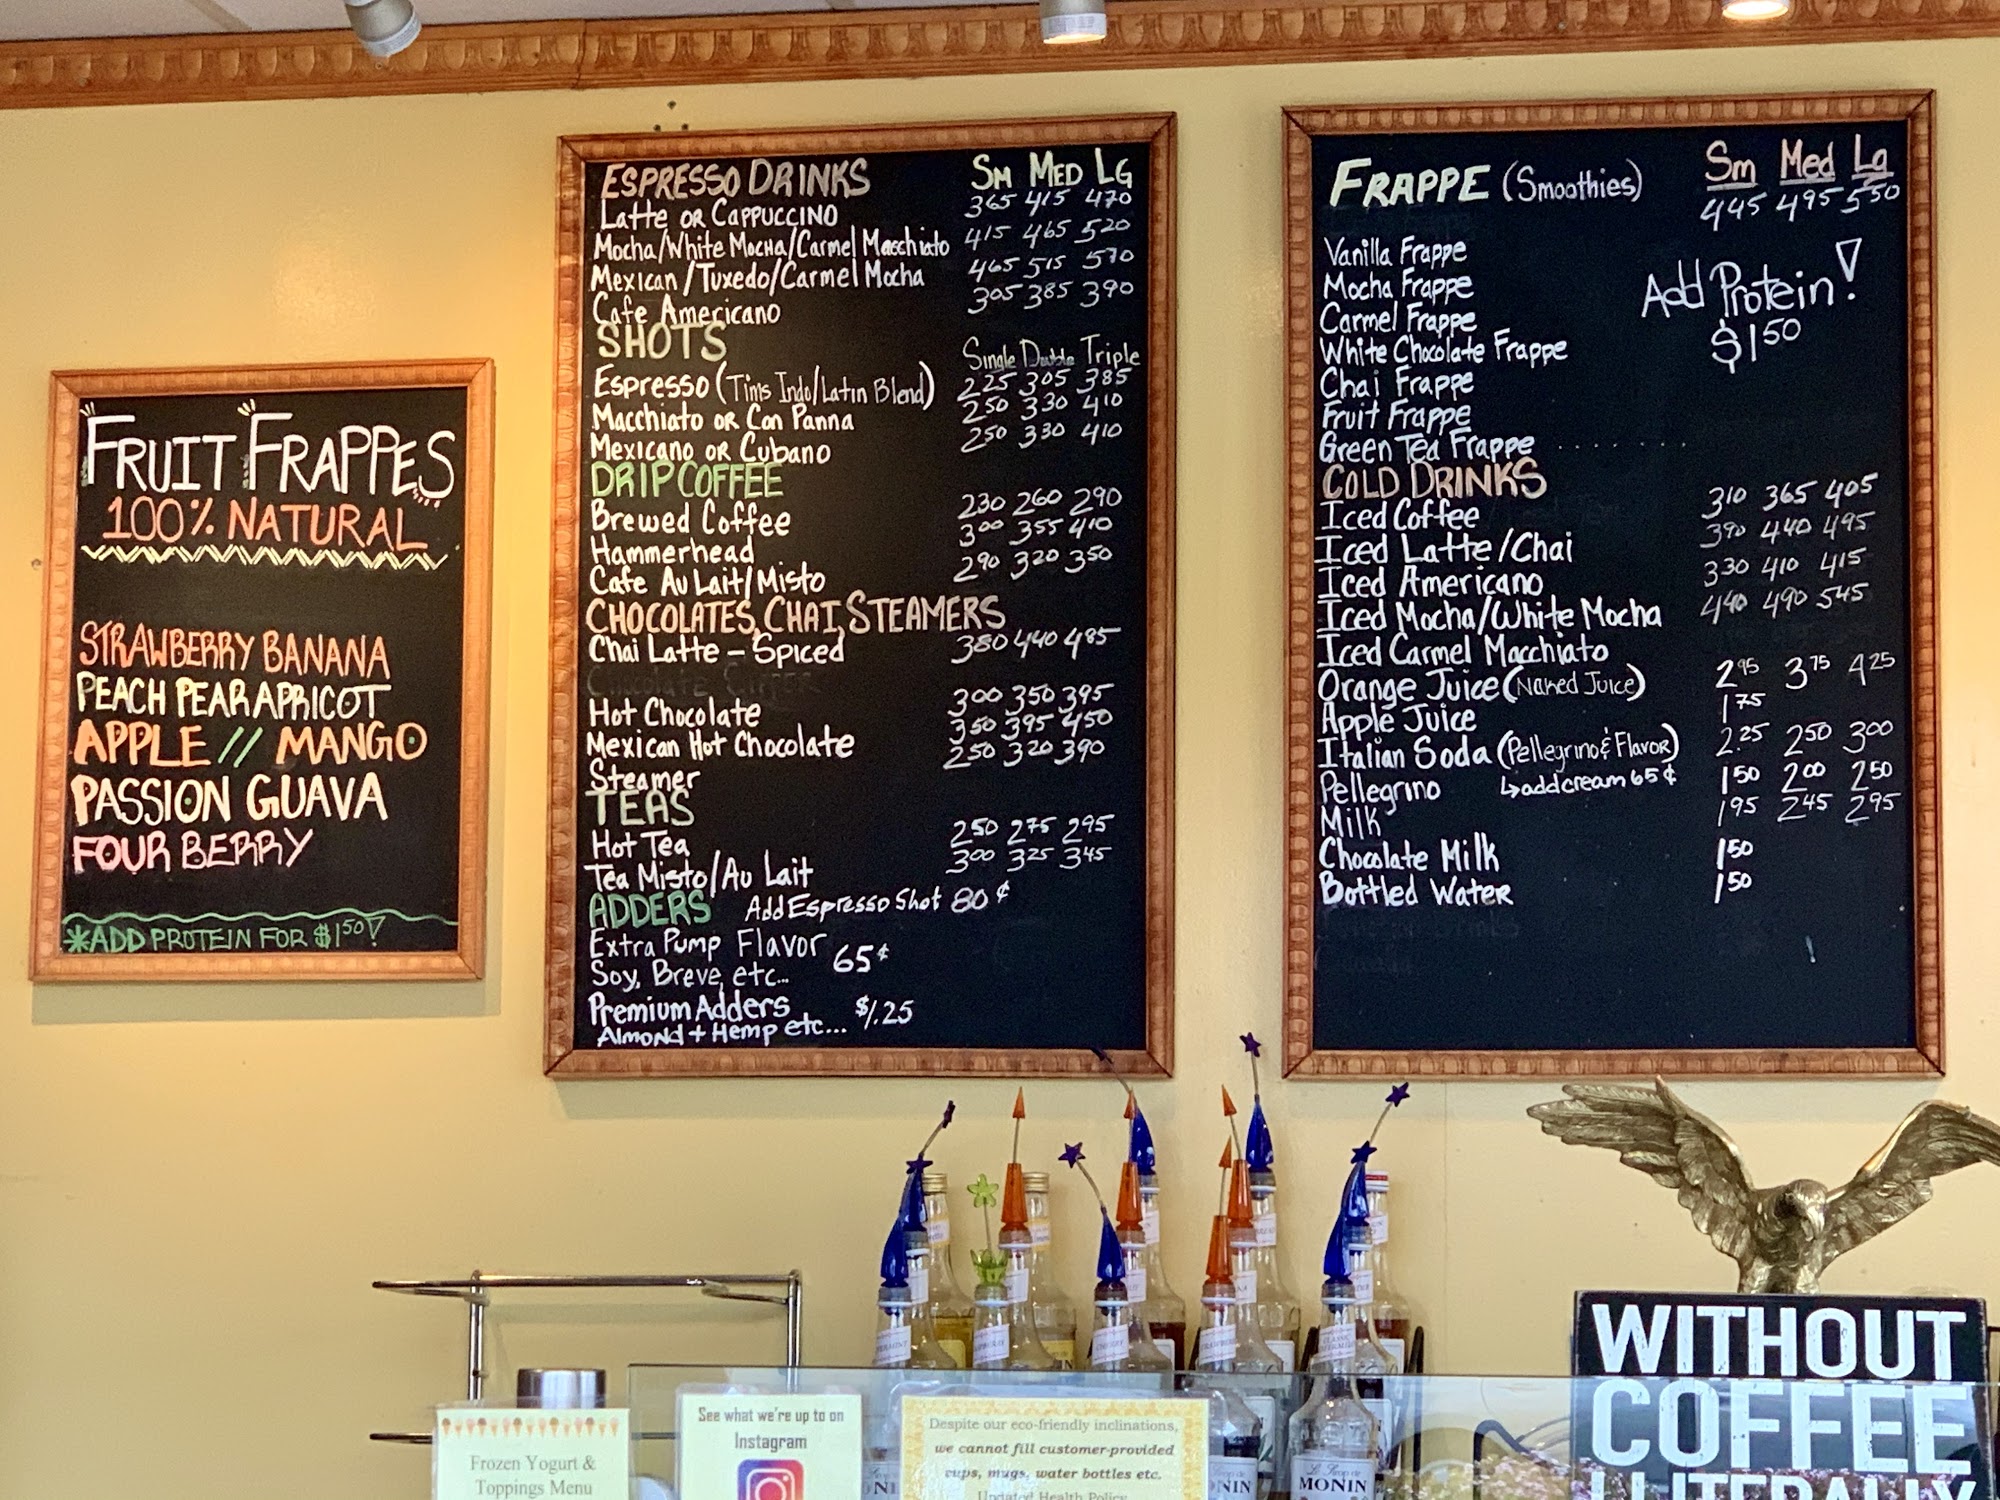 FRUIT FRAPPES
100% NATURAL
STRAWBERRY BANANA
PEACH PEAR APRICOT
APPLE // MANGO
PASSION GUAVA
FOUR BERRY
*ADD PROTEIN FOR $1.50!
ESPRESSO DRINKS SM MED LG
LATTE OR CAPPUCCINO 365 415 470
Mocha/White Mocha/Carmel Macchiato 415 465 520
Mexican/Tuxedo/Carmel Mocha 465 515 570
Cafe Americano 305 385 390
SHOTS Single Double Triple
Espresso (Tims Indo/Latin Blend) 225 305 385
Macchiato OR Con Panna 250 330 410
Mexicano OR Cubano 250 330 410
DRIP COFFEE
Brewed Coffee 230 260 290
Hammerhead 300 355 410
Cafe Au Lait/Misto 290 320 350
CHOCOLATES, CHAI, STEAMERS
Chai Latte - Spiced 380 440 485
Hot Chocolate 300 350 395
Mexican Hot Chocolate 350 395 450
Steamer 250 320 390
TEAS
Hot Tea 250 275 295
Tea Misto/Au Lait 300 325 345
ADDERS Add Espresso Shot 80¢
Extra Pump Flavor 65¢
Soy, Breve, etc...
Premium Adders $1.25
Almond + Hemp etc...
FRAPPE (Smoothies) Sm Med Lg
445 495 550
Vanilla Frappe
Mocha Frappe
Carmel Frappe
White Chocolate Frappe
Chai Frappe
Fruit Frappe
Green Tea Frappe
Add Protein!
$1.50
COLD DRINKS
Iced Coffee 310 365 405
Iced Latte/Chai 390 440 495
Iced Americano 330 410 415
Iced Mocha/White Mocha 440 490 545
Iced Carmel Macchiato
Orange Juice (Naked Juice) 295 375 425
Apple Juice 175
Italian Soda (Pellegrino & Flavor) 2.25 250 300
Pellegrino ↳add cream 65¢ 150 200 250
Milk 195 245 295
Chocolate Milk 150
Bottled Water 150
Frozen Yogurt &
Toppings Menu
See what we're up to on
Instagram
Despite our eco-friendly inclinations,
we cannot fill customer-provided
cups, mugs, water bottles etc.
Updated Health Policy
MONIN
WITHOUT
COFFEE
LITERALLY